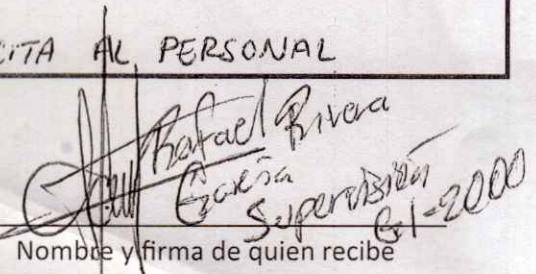 CITA AL PERSONAL
Rafael Rivera
García
Supervisión
GI-2000
Nombre y firma de quien recibe